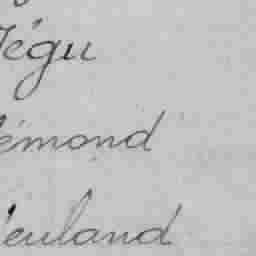 Végu
émond
euland